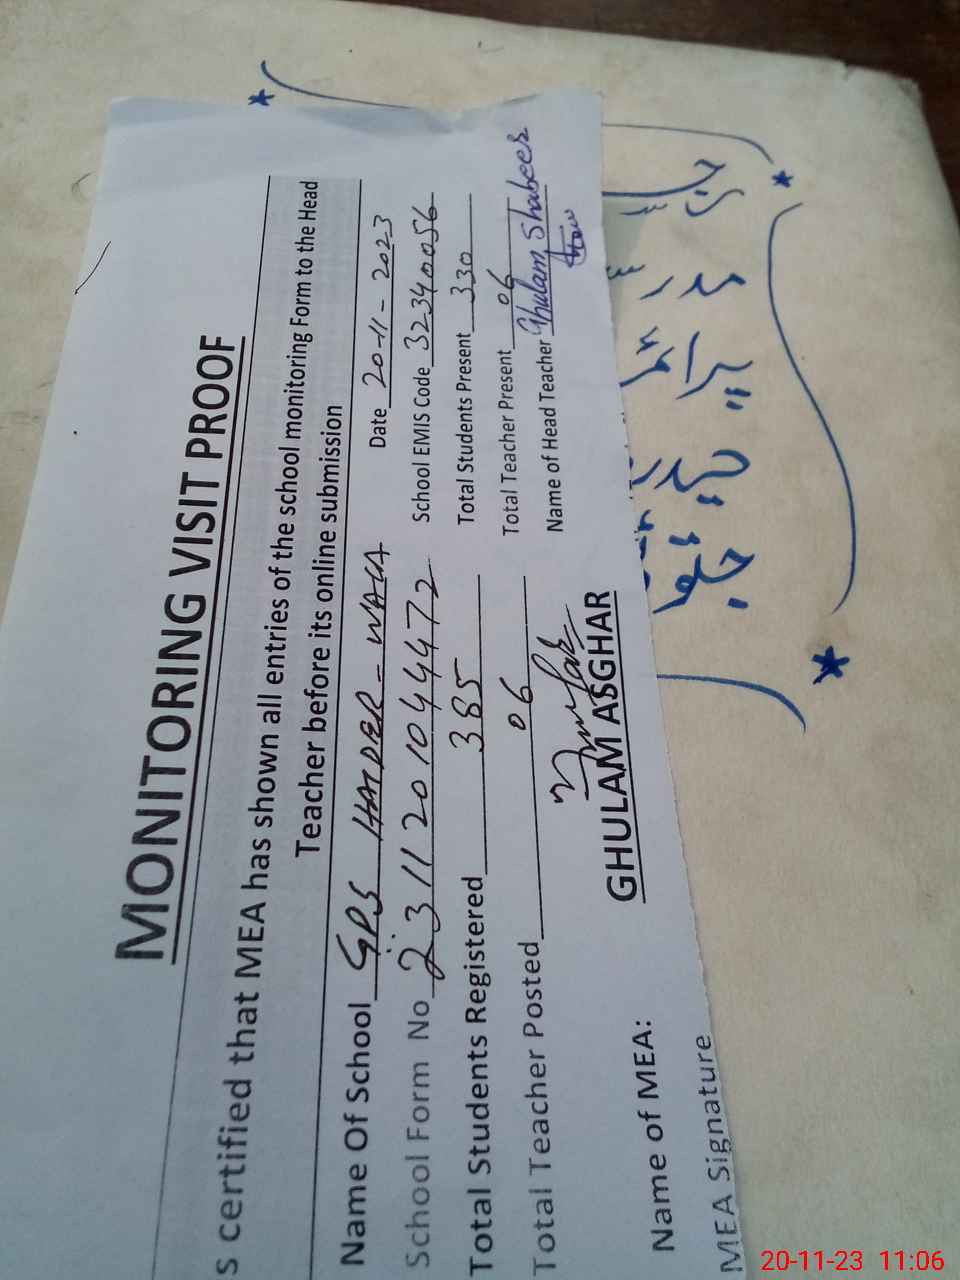 MONITORING VISIT PROOF
s certified that MEA has shown all entries of the school monitoring Form to the Head
Teacher before its online submission
Name Of School GPS HAIDER-WALA Date 20-11-2023
School Form No 231120104472 School EMIS Code 32340056
Total Students Registered 385 Total Students Present 330
Total Teacher Posted 06 Total Teacher Present 06
Name of Head Teacher Ghulam Shabeer
Name of MEA: GHULAM ASGHAR
MEA Signature
20-11-23 11:06